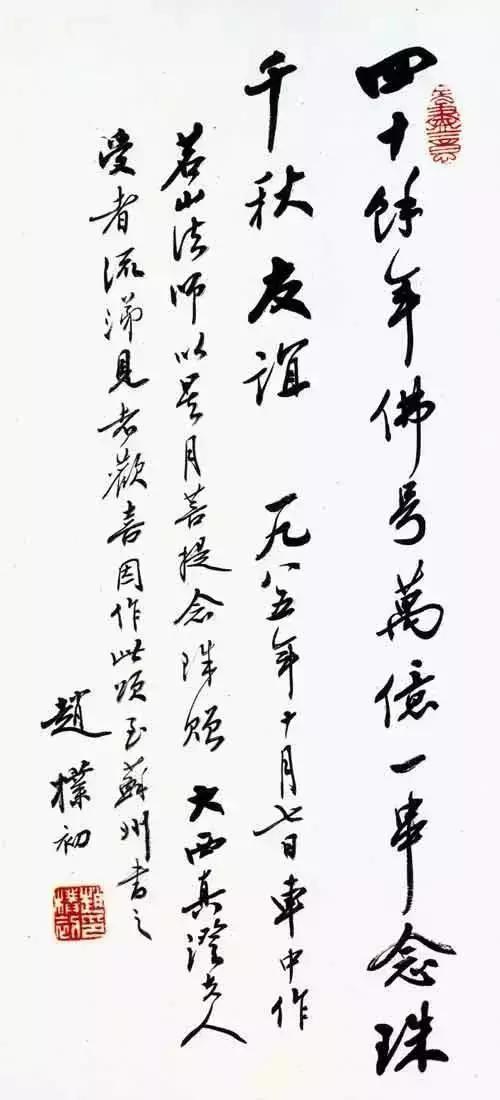 四十餘年佛号萬億一串念珠
千秋友誼 一九八五年十月七日車中作
若山法师以星月菩提念珠贈 大西真澄夫人
受者流涕見者歡喜因作此頌至蘇州書之
趙樸初